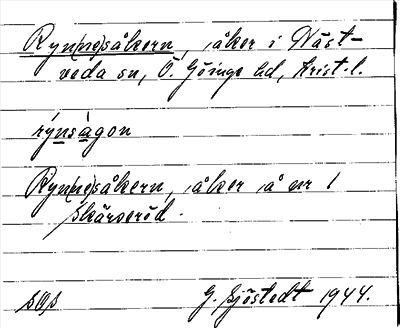 Ryn(ne)såkern, åker i Näst-
veda sn, Ö. Göinge hd, Krist. l.
rýnsågon
Ryn(ne)såkern, åker å nr 1
Skärseröd.
G. Sjöstedt 1944.